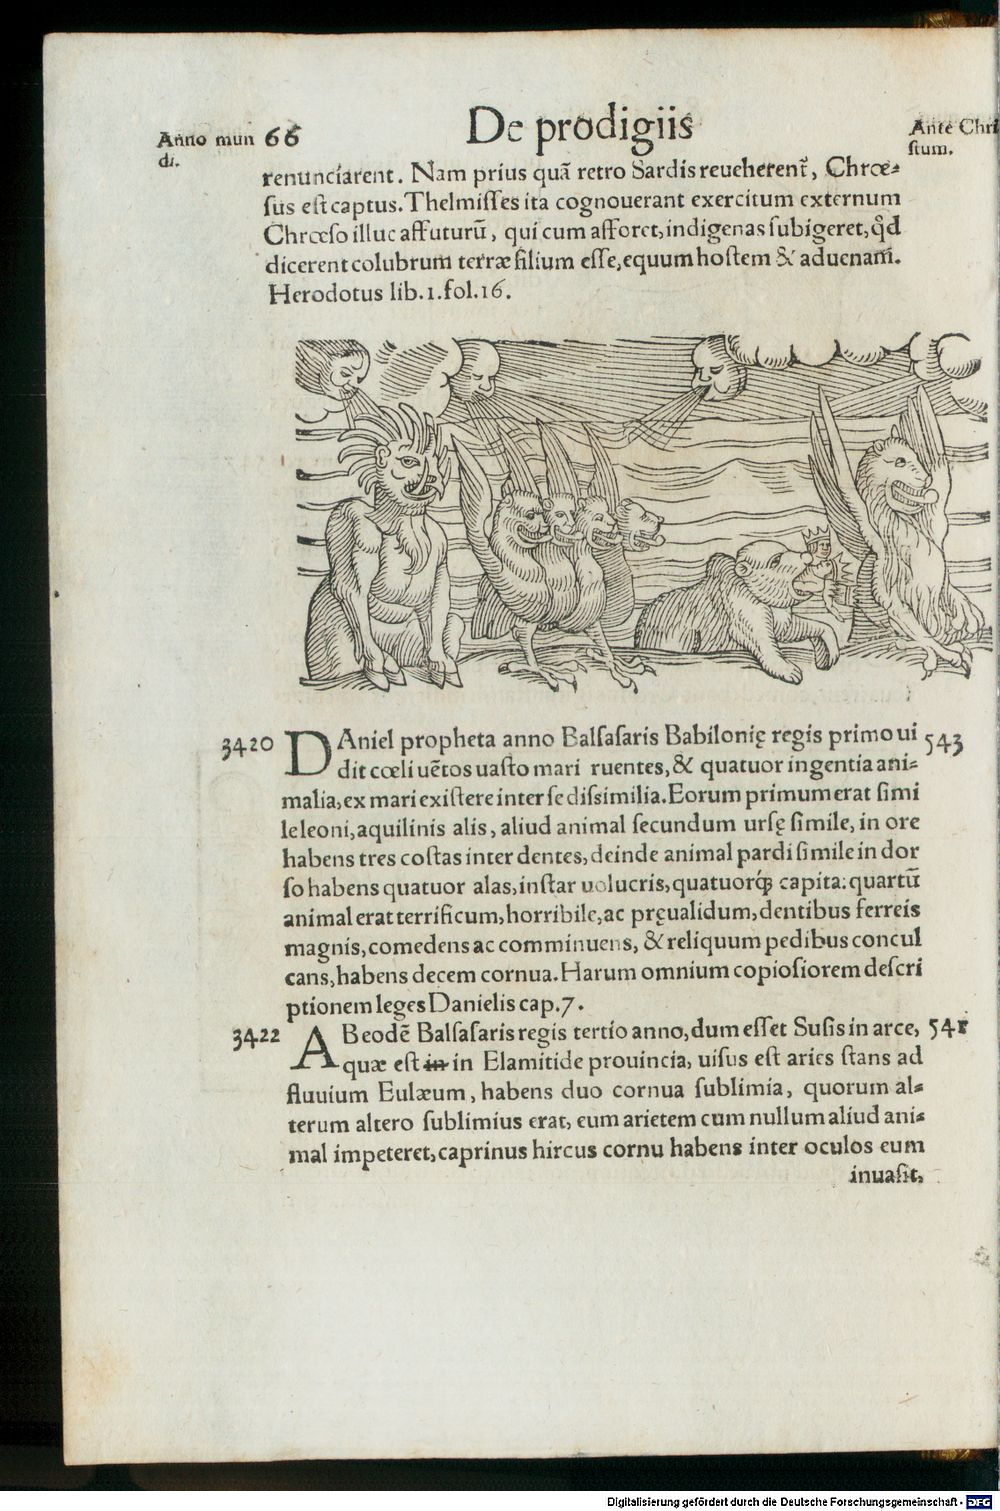 Anno mun 66 De prodigiis Ante Chri
di. stium.
renunciarent. Nam prius quã retro Sardis reueherent̃, Chrœ⸗
ſus eſt captus. Thelmiſſes ita cognouerant exercitum externum
Chrœſo illuc affuturũ, qui cum afforet, indigenas ſubigeret, qđ
dicerent colubrum terræ filium eſſe, equum hoſtem & aduenam.
Herodotus lib. 1. fol. 16.
3420 DAniel propheta anno Balſaſaris Babilonię regis primo ui 543
dit cœli uẽtos uaſto mari ruentes, & quatuor ingentia ani⸗
malia, ex mari exiſtere inter ſe diſsimilia. Eorum primum erat ſimi
le leoni, aquilinis alis, aliud animal ſecundum urſę ſimile, in ore
habens tres coſtas inter dentes, deinde animal pardi ſimile in dor
ſo habens quatuor alas, inſtar uolucris, quatuorq́ꝫ capita: quartũ
animal erat terrificum, horribile, ac pręualidum, dentibus ferreis
magnis, comedens ac comminuens, & reliquum pedibus concul
cans, habens decem cornua. Harum omnium copioſiorem deſcri
ptionem leges Danielis cap. 7.
3422 ABeodẽ Balſaſaris regis tertio anno, dum eſſet Suſis in arce, 541
quæ eſt in in Elamitide prouincia, uiſus eſt aries ſtans ad
fluuium Eulæum, habens duo cornua ſublimia, quorum al⸗
terum altero ſublimius erat, eum arietem cum nullum aliud ani⸗
mal impeteret, caprinus hircus cornu habens inter oculos eum
inuaſit,
Digitalisierung gefördert durch die Deutsche Forschungsgemeinschaft - DFG